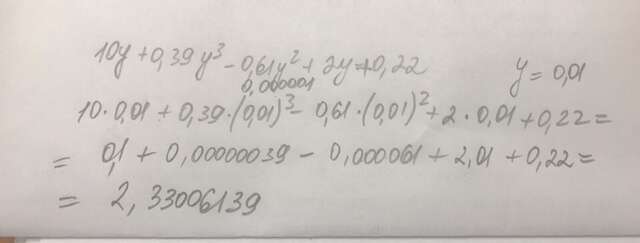 10y + 0,39y³ - 0,61y² + 2y + 0,22 y = 0,01
0,000001
10·0,01 + 0,39·(0,01)³ - 0,61·(0,01)² + 2·0,01 + 0,22 =
= 0,1 + 0,00000039 - 0,000061 + 2,01 + 0,22 =
= 2,33006139